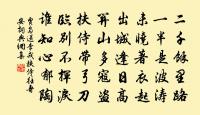 二千餘里路
一半是波濤
未曉著衣起
出城逢日高
關山多寇盜
扶侍帶弓刀
臨別不揮淚
誰知心郁陶
賈島送李戎扶侍往壽
安詞典網集